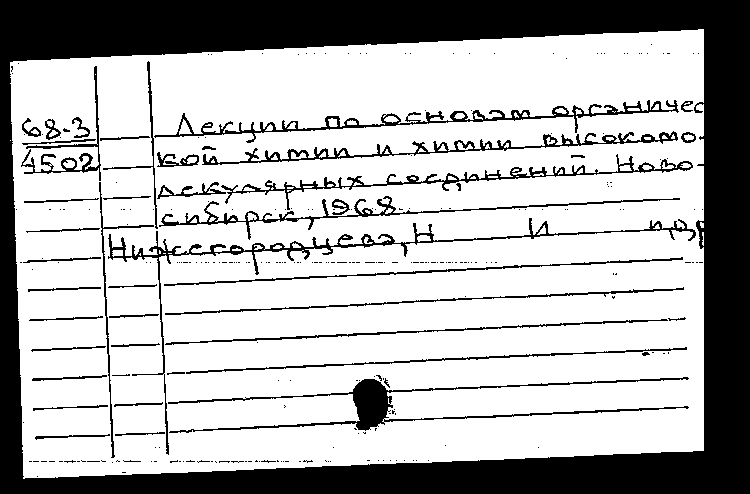 68-3 Лекции по основам органичес
4502 кой химии и химии высокомо-
лекулярных соединений. Ново-
сибирск, 1968.
Нижегородцева, Н И и др